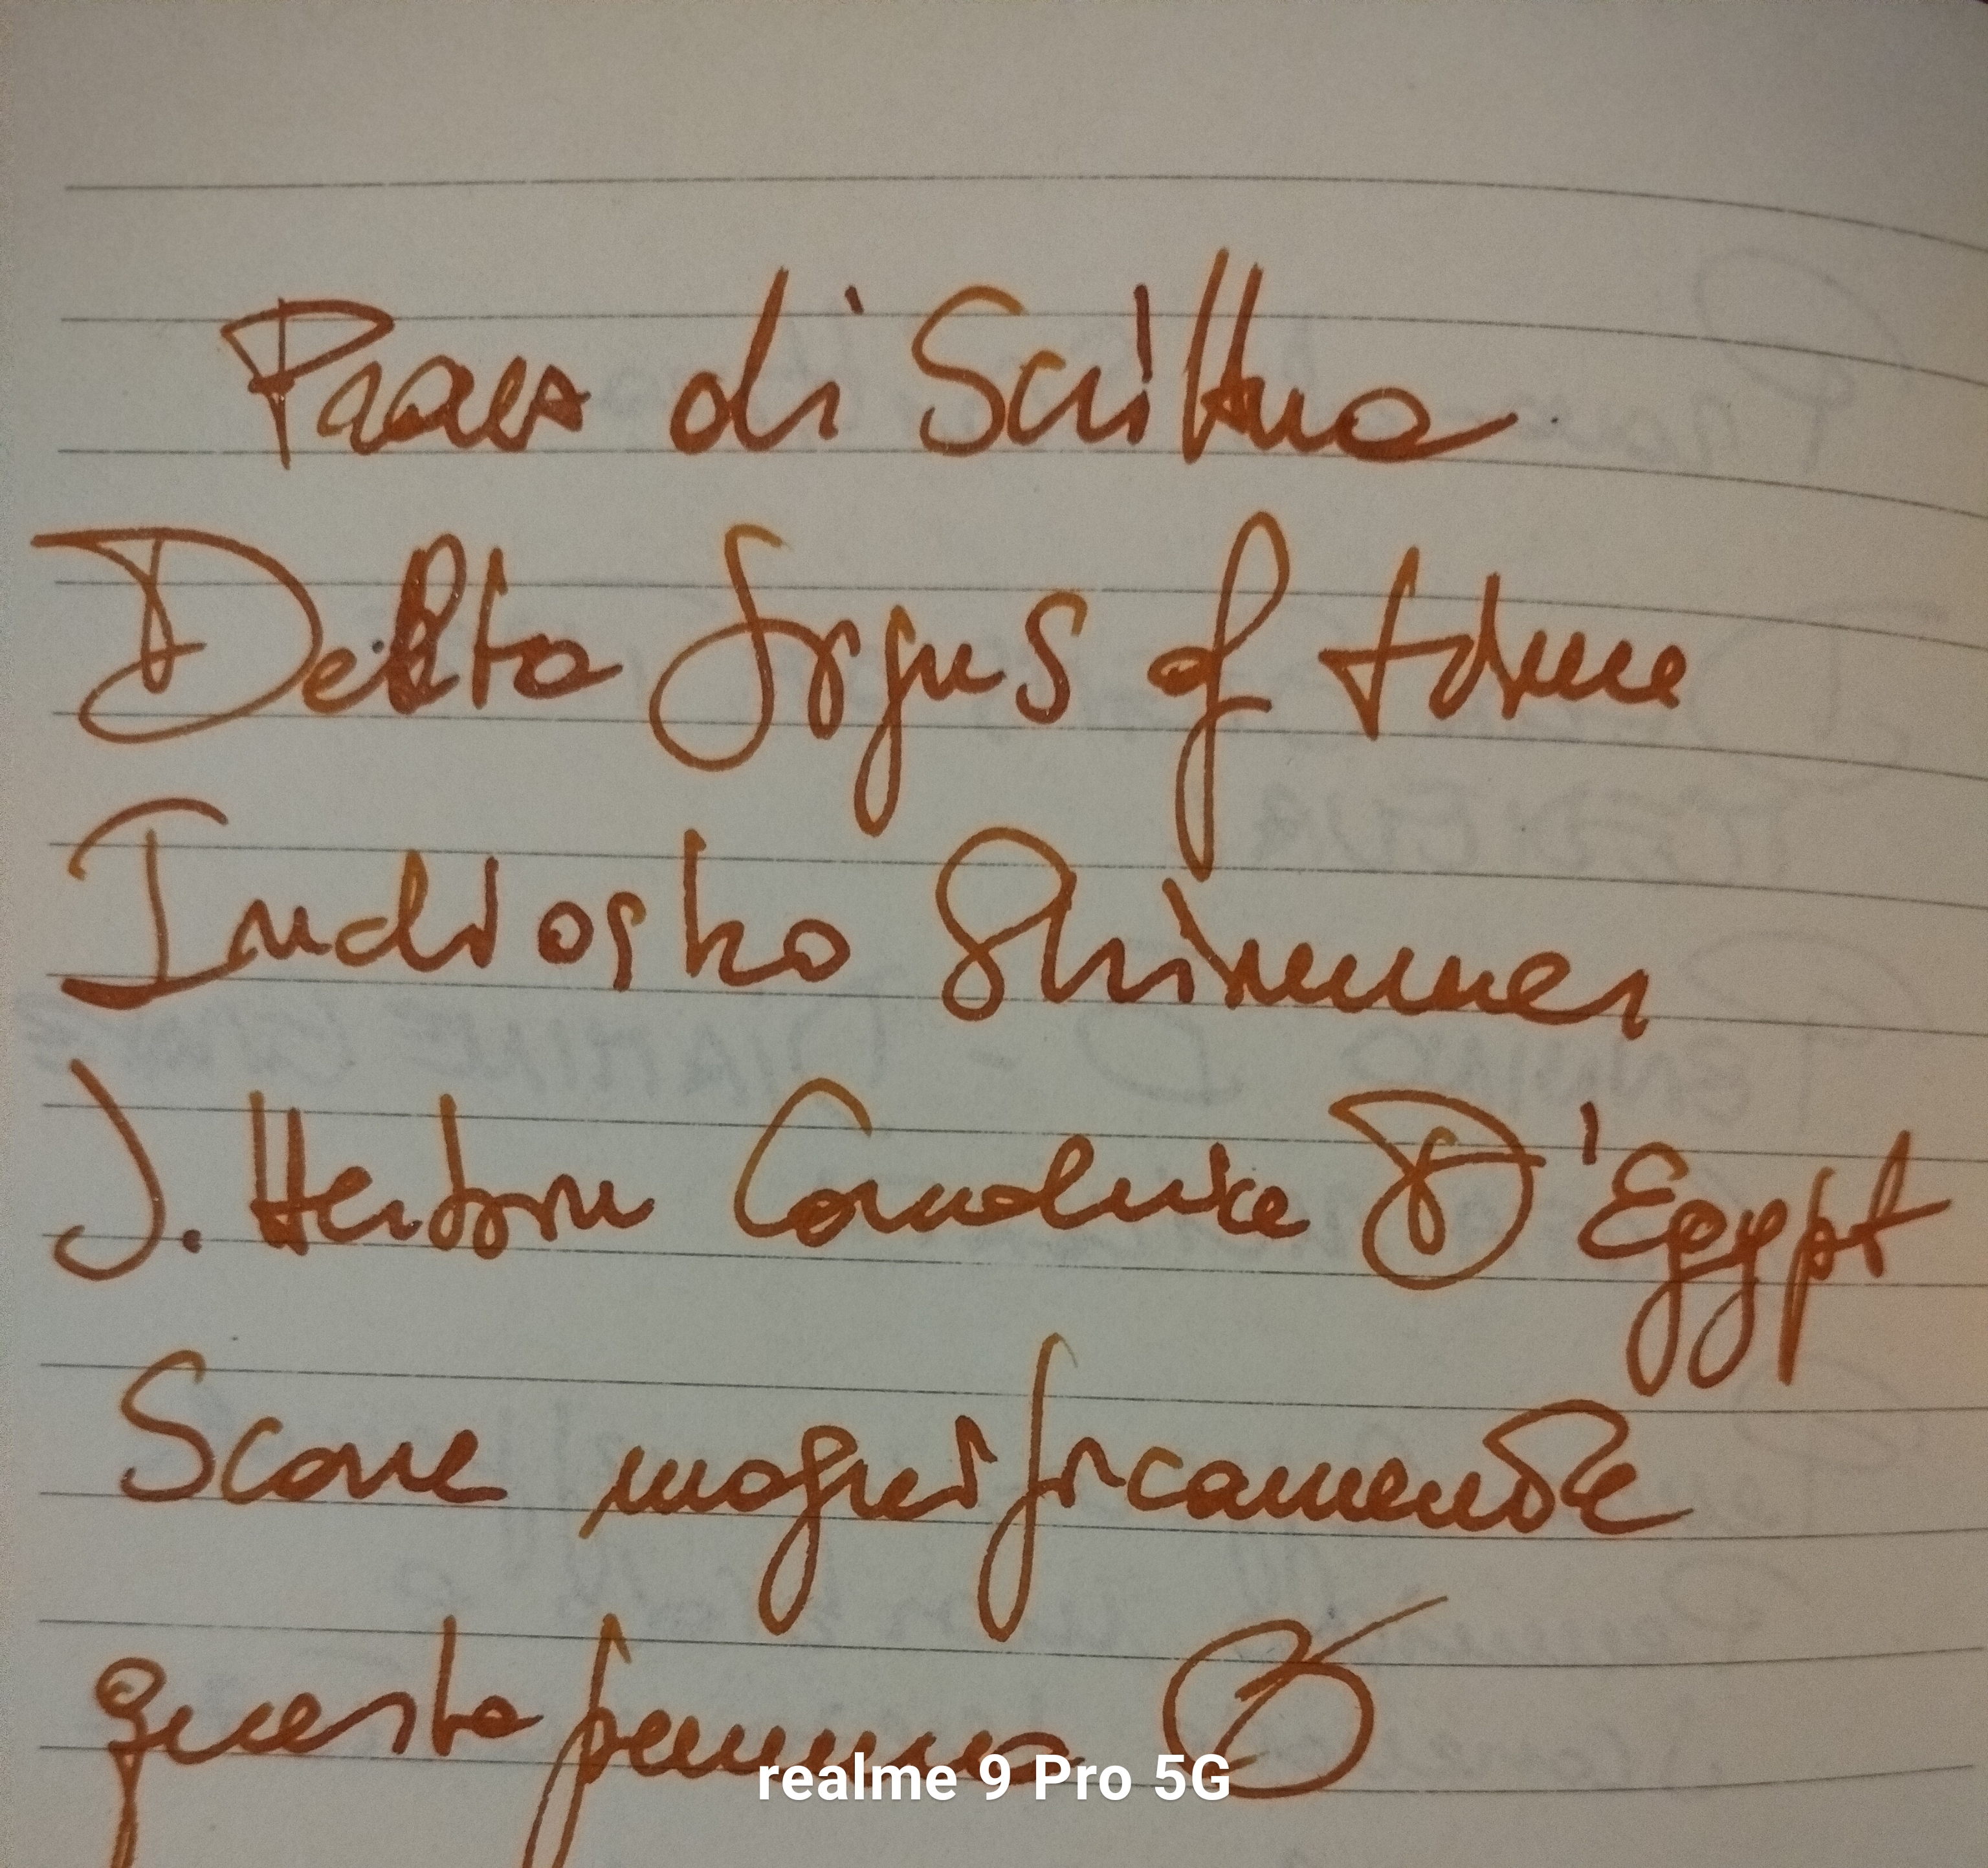 Prova di Scrittura
Delta Signs of time
Indioško Shimmer
J. Herbin Cornaline D'Egypt
Scorre magnificamente
questa penna
realme 9 Pro 5G